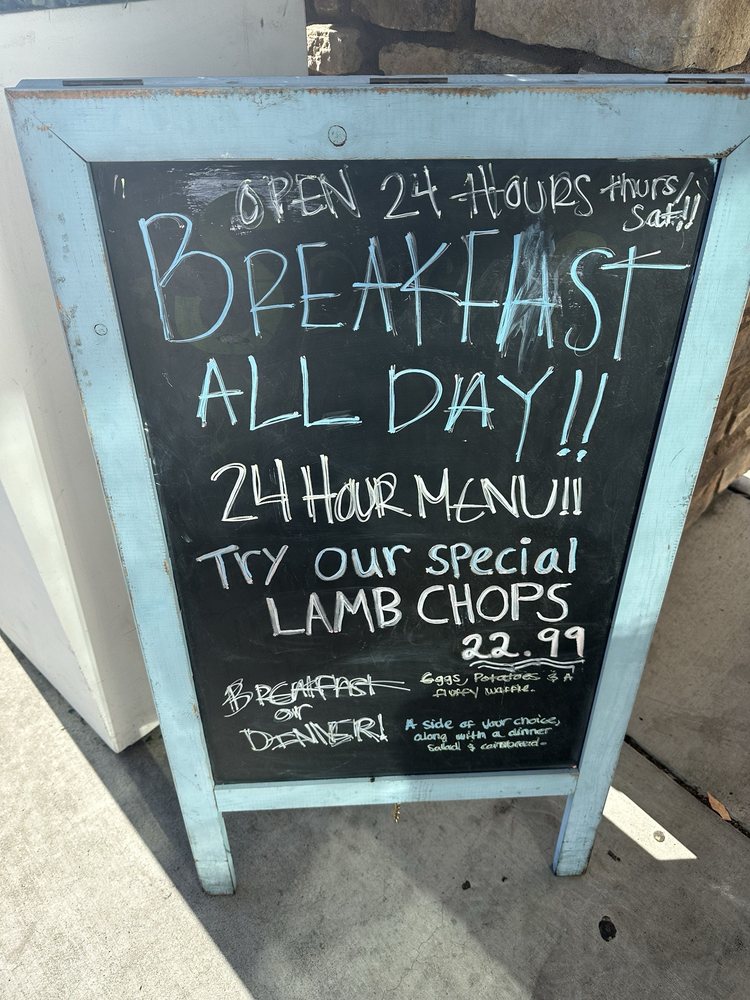 OPEN 24 HOURS thurs/
Sat!!
BREAKFAST
ALL DAY!!
24 HOUR MENU!!
Try our special
LAMB CHOPS
22.99
BREAKFAST
Eggs, Potatoes & A
fluffy waffle.
our
DINNER!
A side of your choice,
along with a dinner
Salad & cornbread.